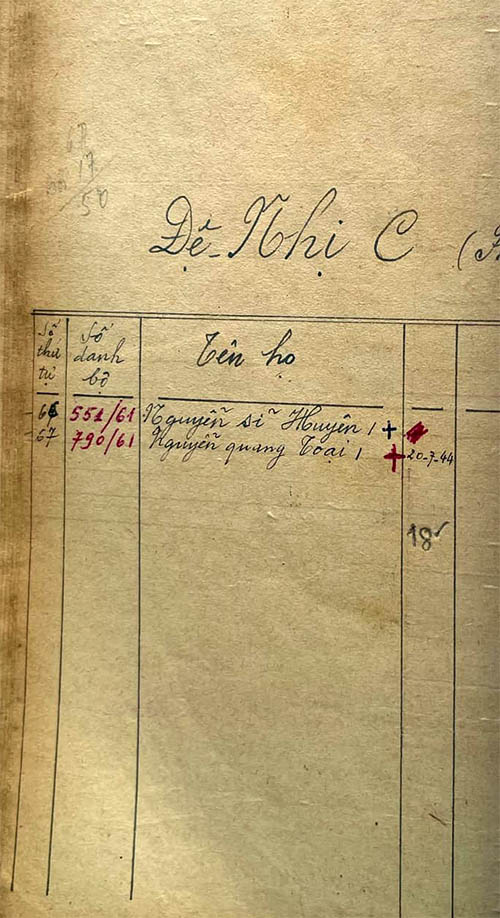 67
17
50
Đệ-Nhị C (
Số thứ tự
Số danh bộ
Tên họ
66 551/61 Nguyễn sĩ Huyên / +
67 790/61 Nguyễn quang Toại / + 20-7-44
18